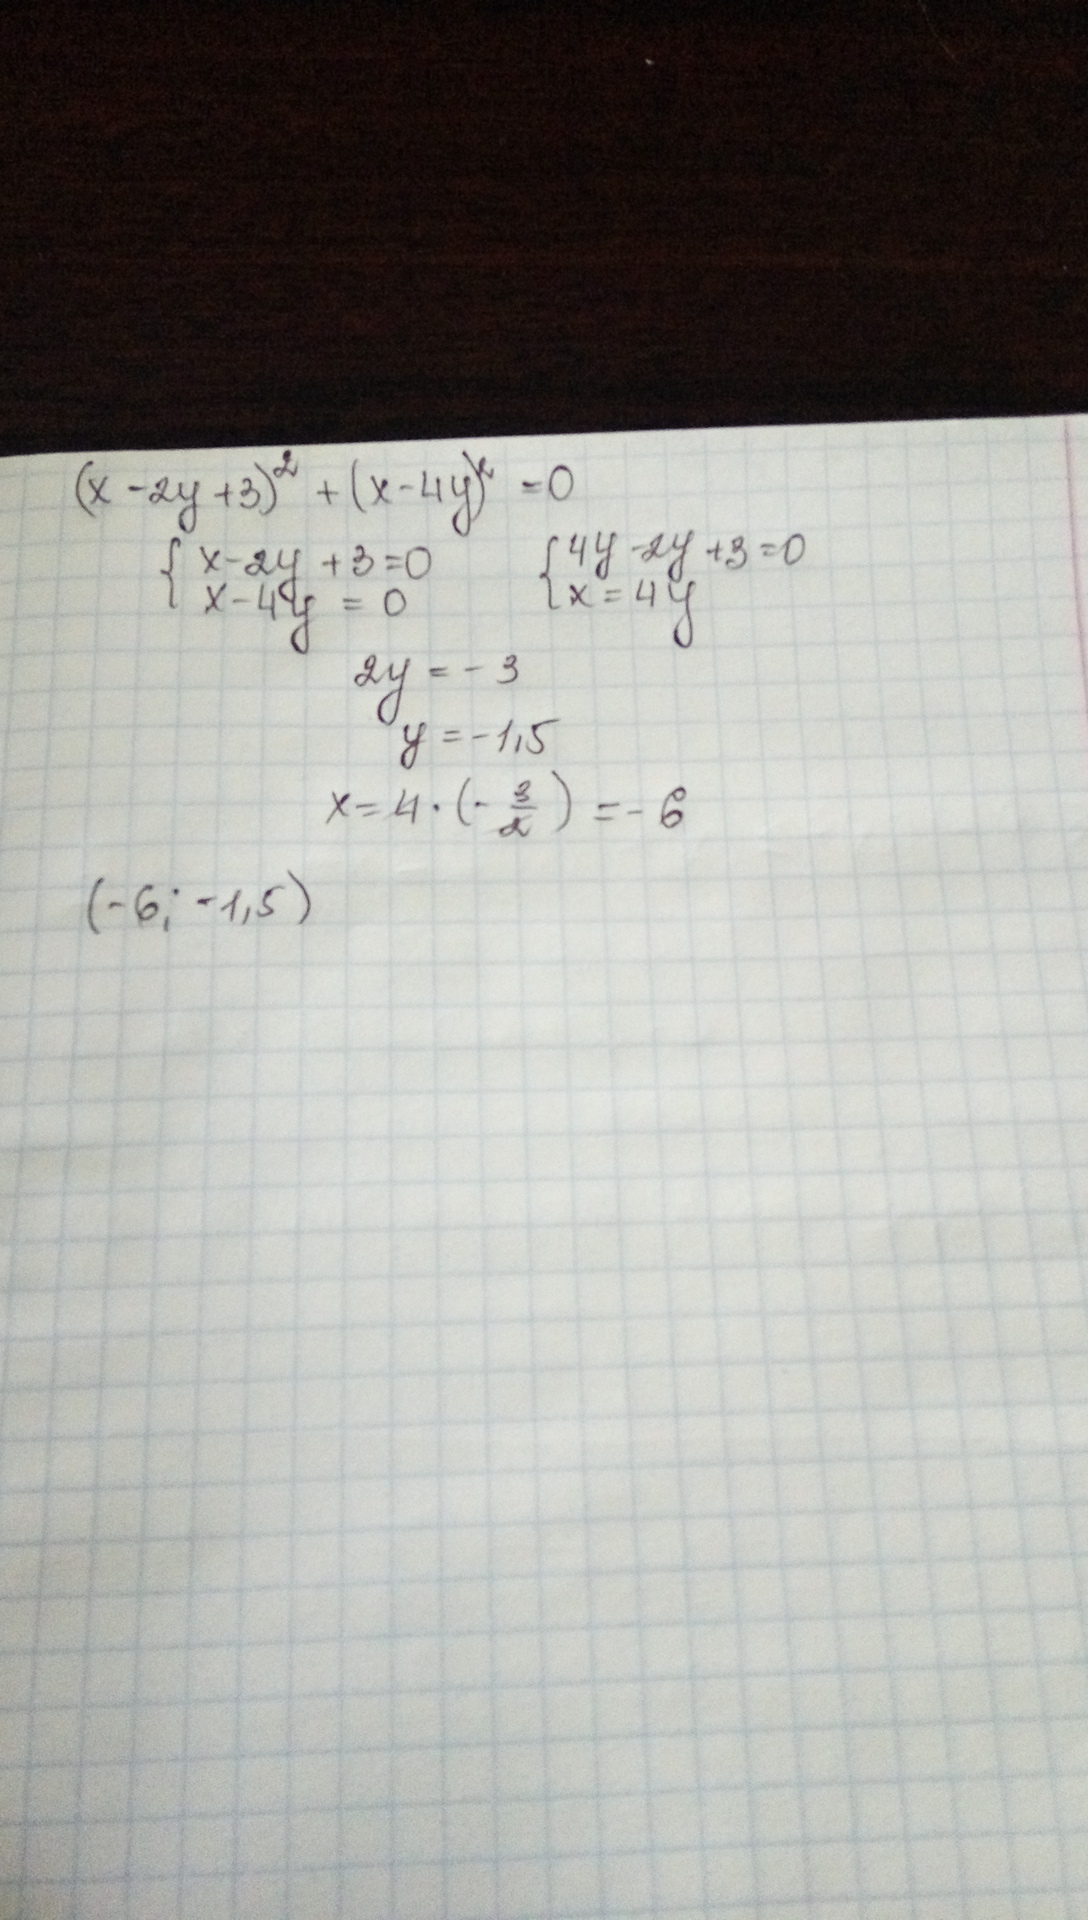 (x-2y+3)² + (x-4y)² = 0
{ x-2y+3=0 { 4y-2y+3=0
x-4y = 0 x=4y
2y = -3
y = -1,5
x = 4·(-3/2) = -6
(-6; -1,5)